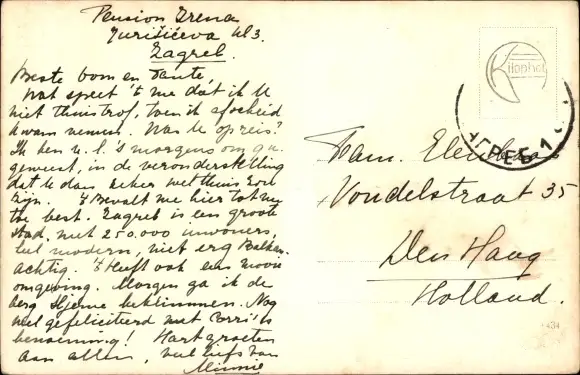 Pension Irena
Jurišićeva Ul 3.
Zagreb.
Beste oom en Tante,
Wat speet 't me dat ik U
niet thuis trof, toen ik afscheid
kwam nemen. Was U op reis?
Ik ben n.l. 's morgens om 9 u.
geweest, in de veronderstelling
dat U dan zeker wel thuis zou
zijn. 't Bevalt me hier tot nu
toe best. Zagreb is een groote
stad, met 250.000 inwoners,
heel modern, niet erg Balkan-
achtig. 't Heeft ook een mooie
omgeving. Morgen ga ik de
berg Sljeme beklimmen. Nog
wel gefeliciteerd met
benoeming! Hart. groeten
aan allen, veel liefs van
Minnie
Kilophot
ЗАГРЕБ 1
Fam.
Vondelstraat 35
Den Haag
Holland.